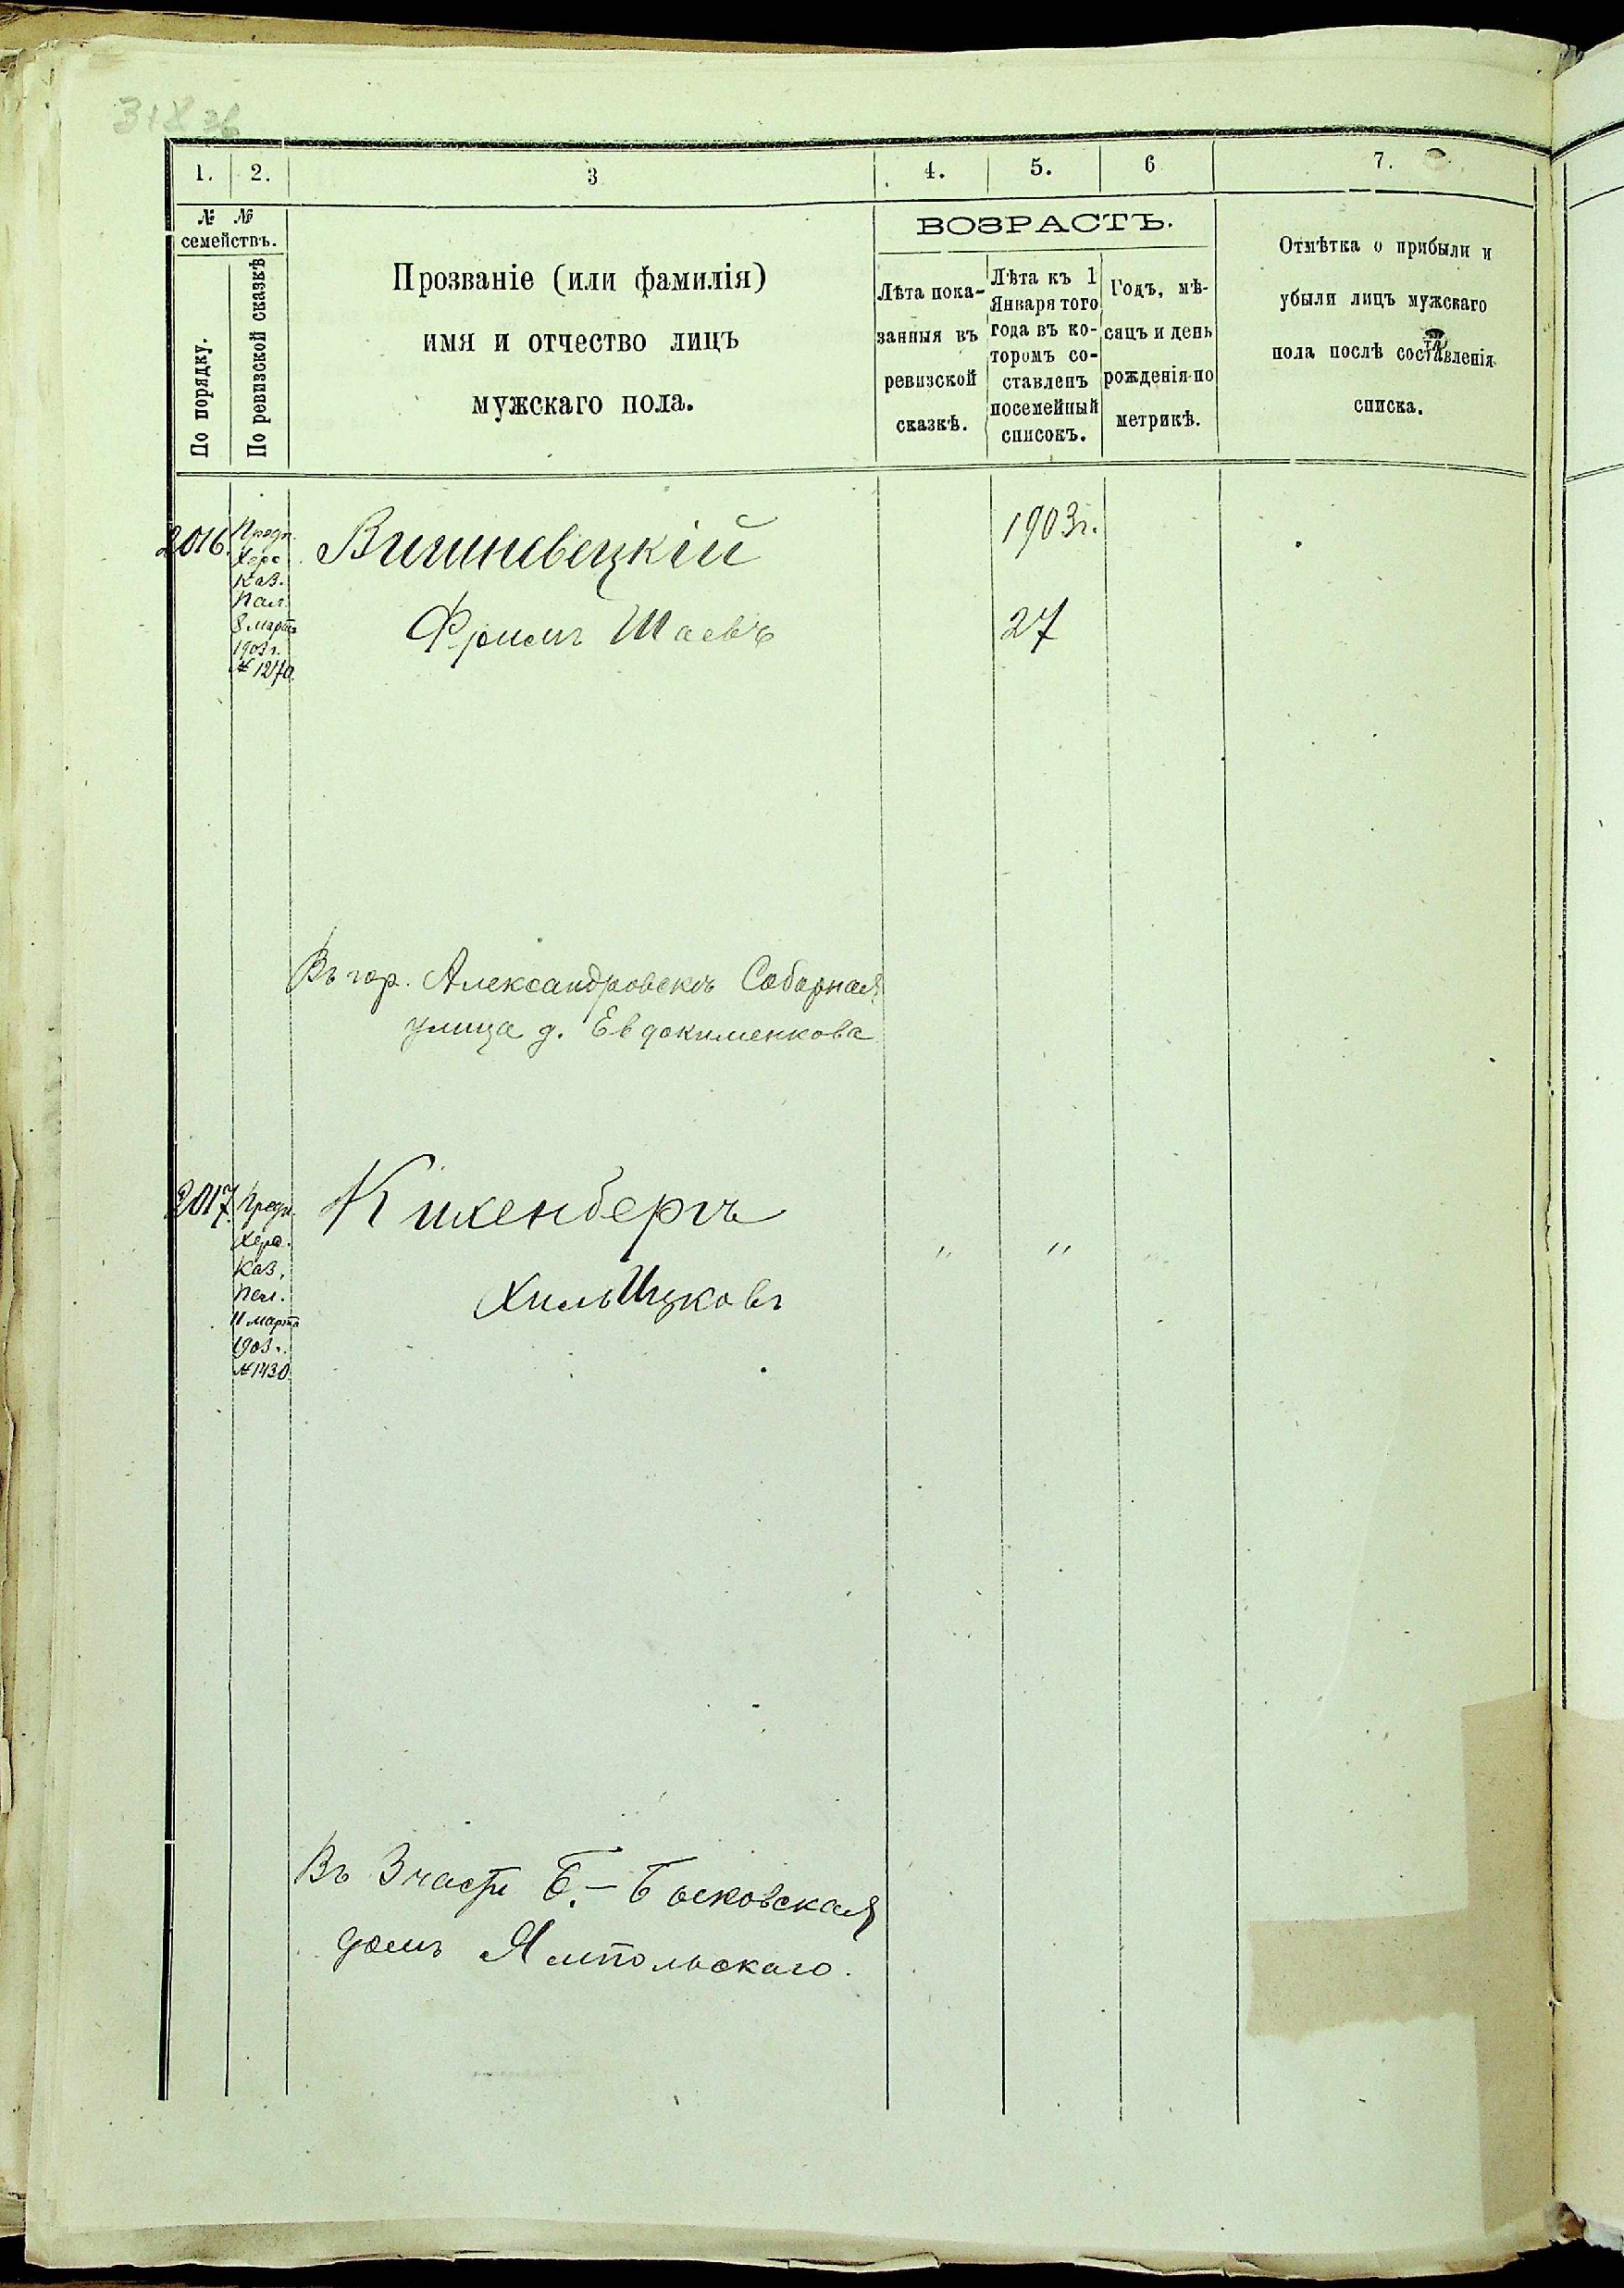 1. 2. 3 4. 5. 6 7.
№ №
семействъ.
По порядку.
По ревизской сказкѣ
Прозваніе (или фамилія)
имя и отчество лицъ
мужскаго пола.
ВОЗРАСТЪ.
Лѣта пока-
занныя въ
ревизской
сказкѣ.
Лѣта къ 1
Января того
года въ ко-
торомъ со-
ставленъ
посемейный
списокъ.
Годъ, мѣ-
сяцъ и день
рожденія по
метрикѣ.
Отмѣтка о прибыли и
убыли лицъ мужскаго
пола послѣ составленія
списка.
2016.
Предп.
Херс.
Каз.
Пал.
8 марта
1903 г.
№ 1270.
Вишневецкій
1903 г.
Фроимъ Шаевъ
27
Въ гор. Александровскъ Соборная
улица д. Евдокименкова
2017.
Предп.
Херс.
Каз.
Пал.
11 марта
1903 г.
№ 1430.
Кикенбергъ
" "
Хиль Ицковъ
Въ 3 части Б.-
домъ Ямпольскаго.